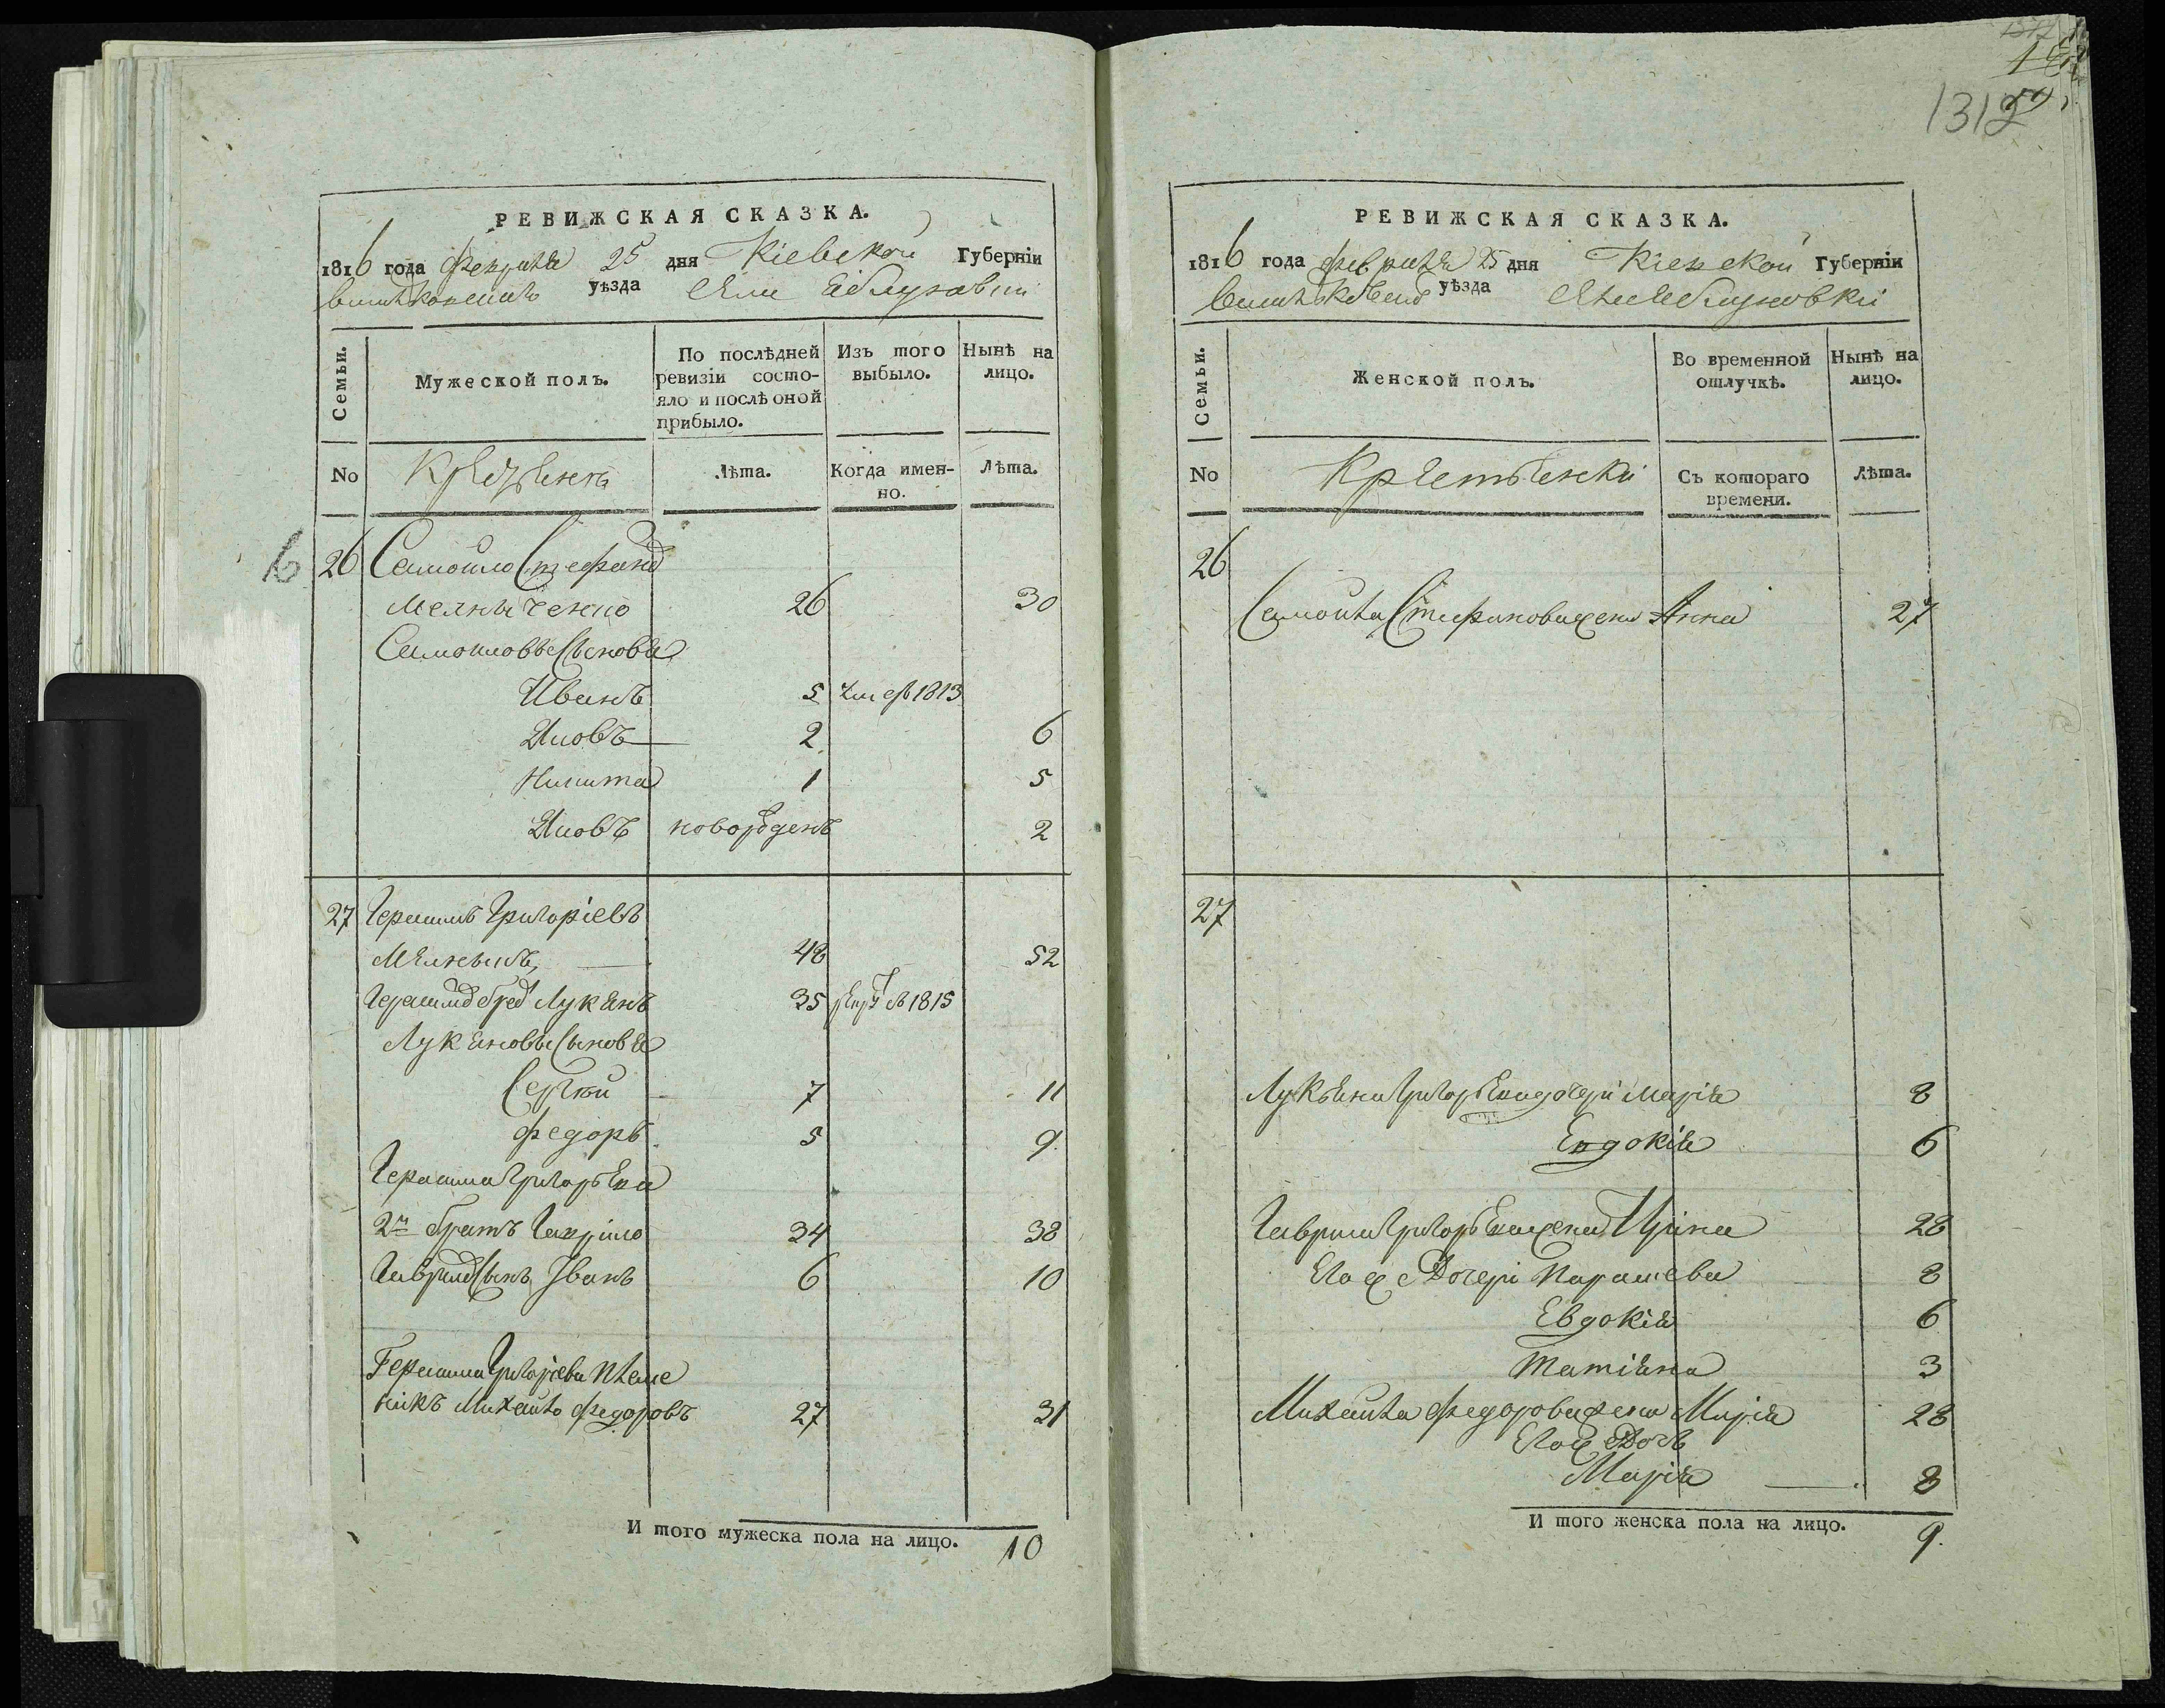 РЕВИЖСКАЯ СКАЗКА.
1816 года февраля 25 дня Кіевской Губерніи
уѣзда
Семьи.
Мужеской полъ.
По послѣдней ревизіи состояло и послѣ оной прибыло.
Изъ того выбыло.
Нынѣ на лицо.
No
Лѣта.
Когда именно.
Лѣта.
26 Самойло Стефанов
Мелниченко 26 30
Самойловы Сыновья
Иванъ 5 умер 1813
Яковъ 2 6
Никита 1 5
Яковъ новорожденъ 2
27 Герасимъ Григоріевъ
Мелникъ 48 52
Герасимов брат Лукянъ 35 1815
Лукяновы Сыновья
Сергѣй 7 11
Федоръ 5 9.
Герасима Григорьева
2й братъ Гаврило 34 38
Гаврилов Сынъ Іванъ 6 10
Герасима Григоріева племе
никъ Михайло Федоровъ 27 31
И того мужеска пола на лицо. 10
1312
РЕВИЖСКАЯ СКАЗКА.
1816 года февраля 25 дня Кіевской Губерніи
уѣзда
Семьи.
Женской полъ.
Во временной отлучкѣ.
Нынѣ на лицо.
No
Крестьянки
Съ котораго времени.
Лѣта.
26
Самойла Стефанова жена Анна 27
27
Лукьяна Григорьева дочери Марія 8
Евдокія 6
Гаврила Григорьева жена Ирина 28
Его же Дочери Парасцева 8
Евдокія 6
Татіяна 3
Михайла Федорова жена Марія 28
Его же Дочь
Марія 8
И того женска пола на лицо. 9.